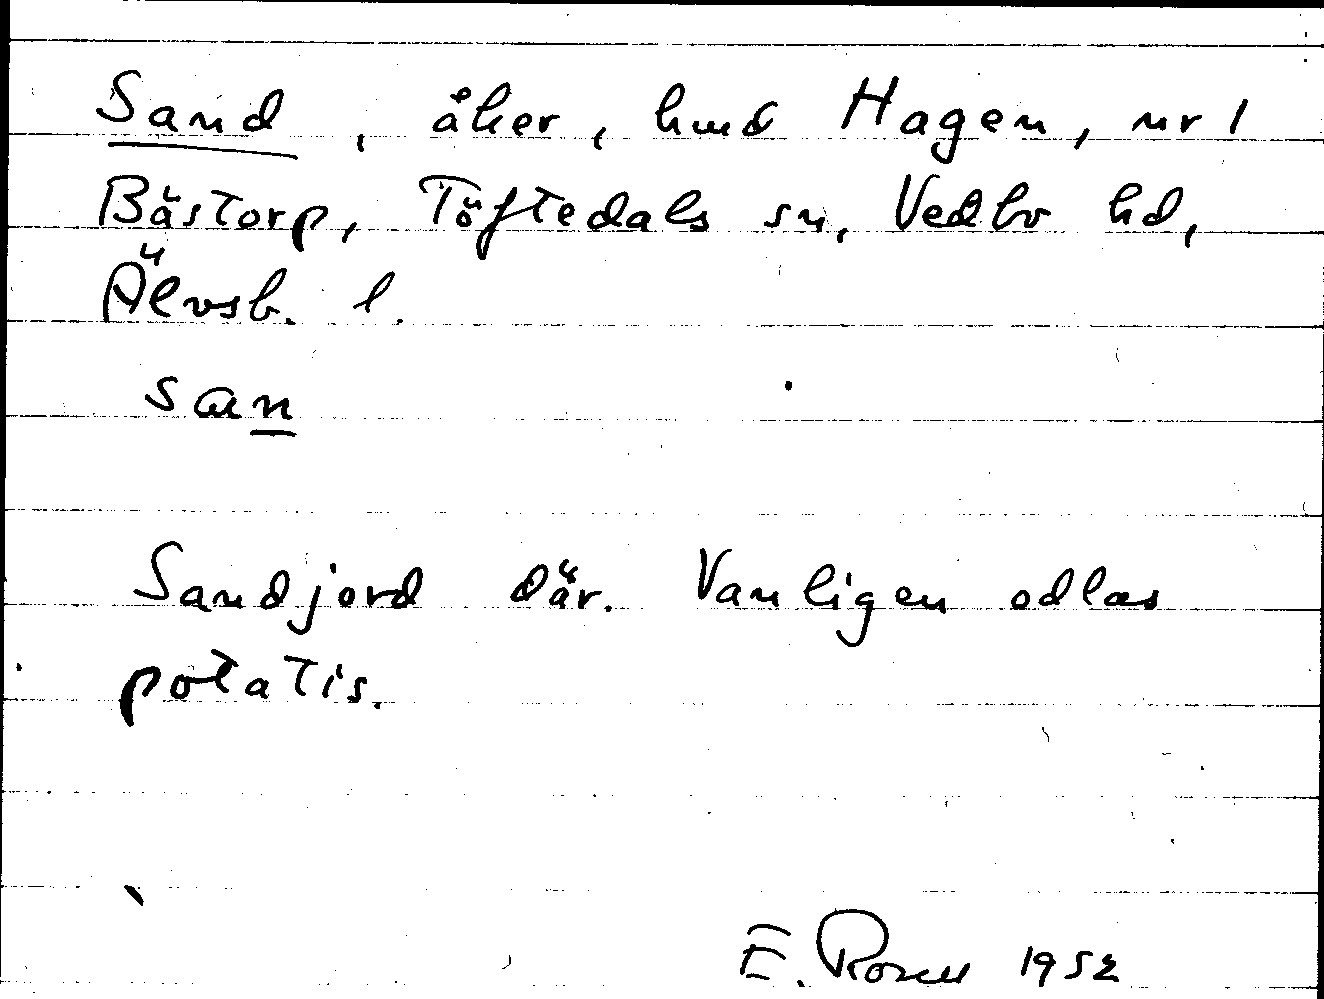 Sand, åker, hmd Hagen, nr 1
Bästorp, Töftedals sn, Vedbo hd,
Älvsb. l.
san
Sandjord där. Vanligen odlas
potatis.
E. Rosell 1952